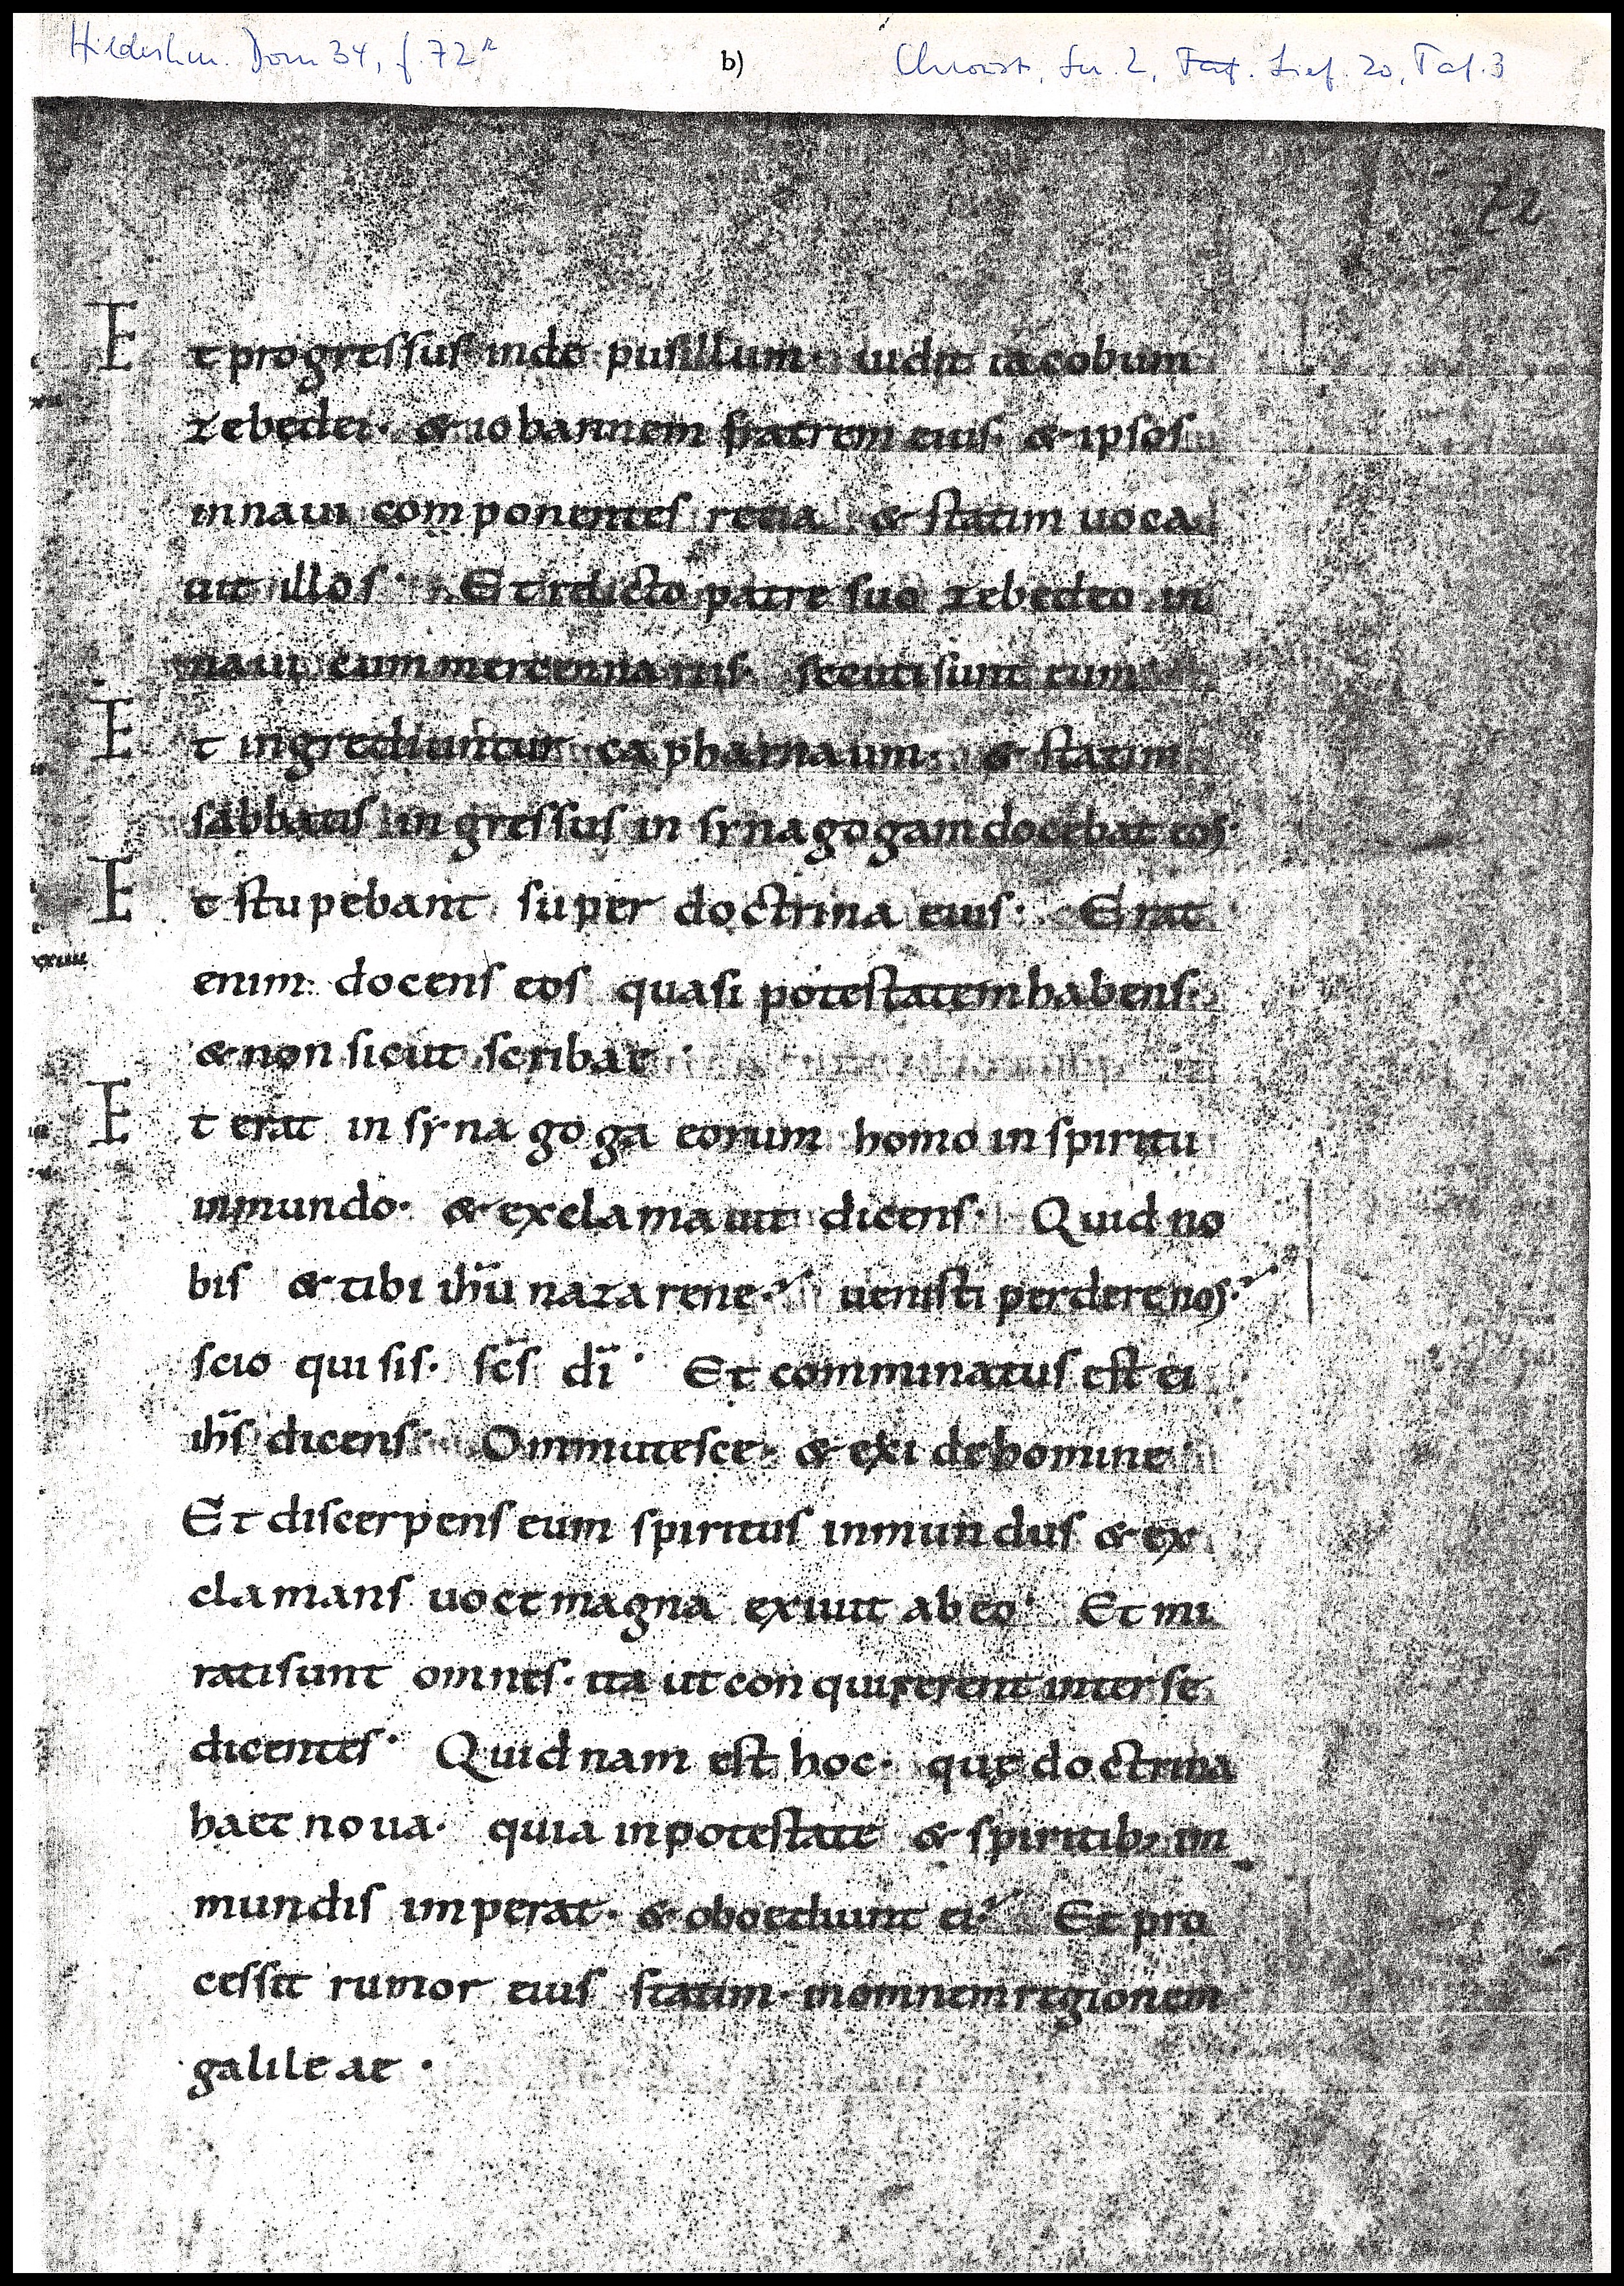 Hildeshm. Dom 34, f. 72r
b)
Chroust, Ser. 2, Lief. 20, Taf. 3
72
Et progressus inde pusillum· uidit iacobum
zebedei· & iohannem fratrem eius· & ipsos
in naui componentes retia & statim uoca
uit illos· Et relicto patre suo zebedeo in
naui cum mercennariis· secuti sunt eum
Et ingrediuntur capharnaum· & statim
sabbatis ingressus in synagogam docebat eos·
Et stupebant super doctrina eius· Erat
enim docens eos quasi potestatem habens·
xxiiii
& non sicut scribae·
Et erat in synagoga eorum homo in spiritu
inmundo· & exclamauit dicens· Quid no
bis & tibi ihu̅ nazarene? uenisti perdere nos?
scio qui sis· sc̅s di̅· Et comminatus est ei
ih̅s dicens· Ommutesce· & exi de homine·
Et discerpens eum spiritus inmundus & ex
clamans uoce magna exiuit ab eo· Et mi
rati sunt omnes· ita ut conquirerent inter se
dicentes· Quidnam est hoc· quę doctrina
haec noua· quia in potestate & spiritib; im
mundis imperat· & oboediunt ei? Et pro
cessit rumor eius statim· in omnem regionem
galileae·